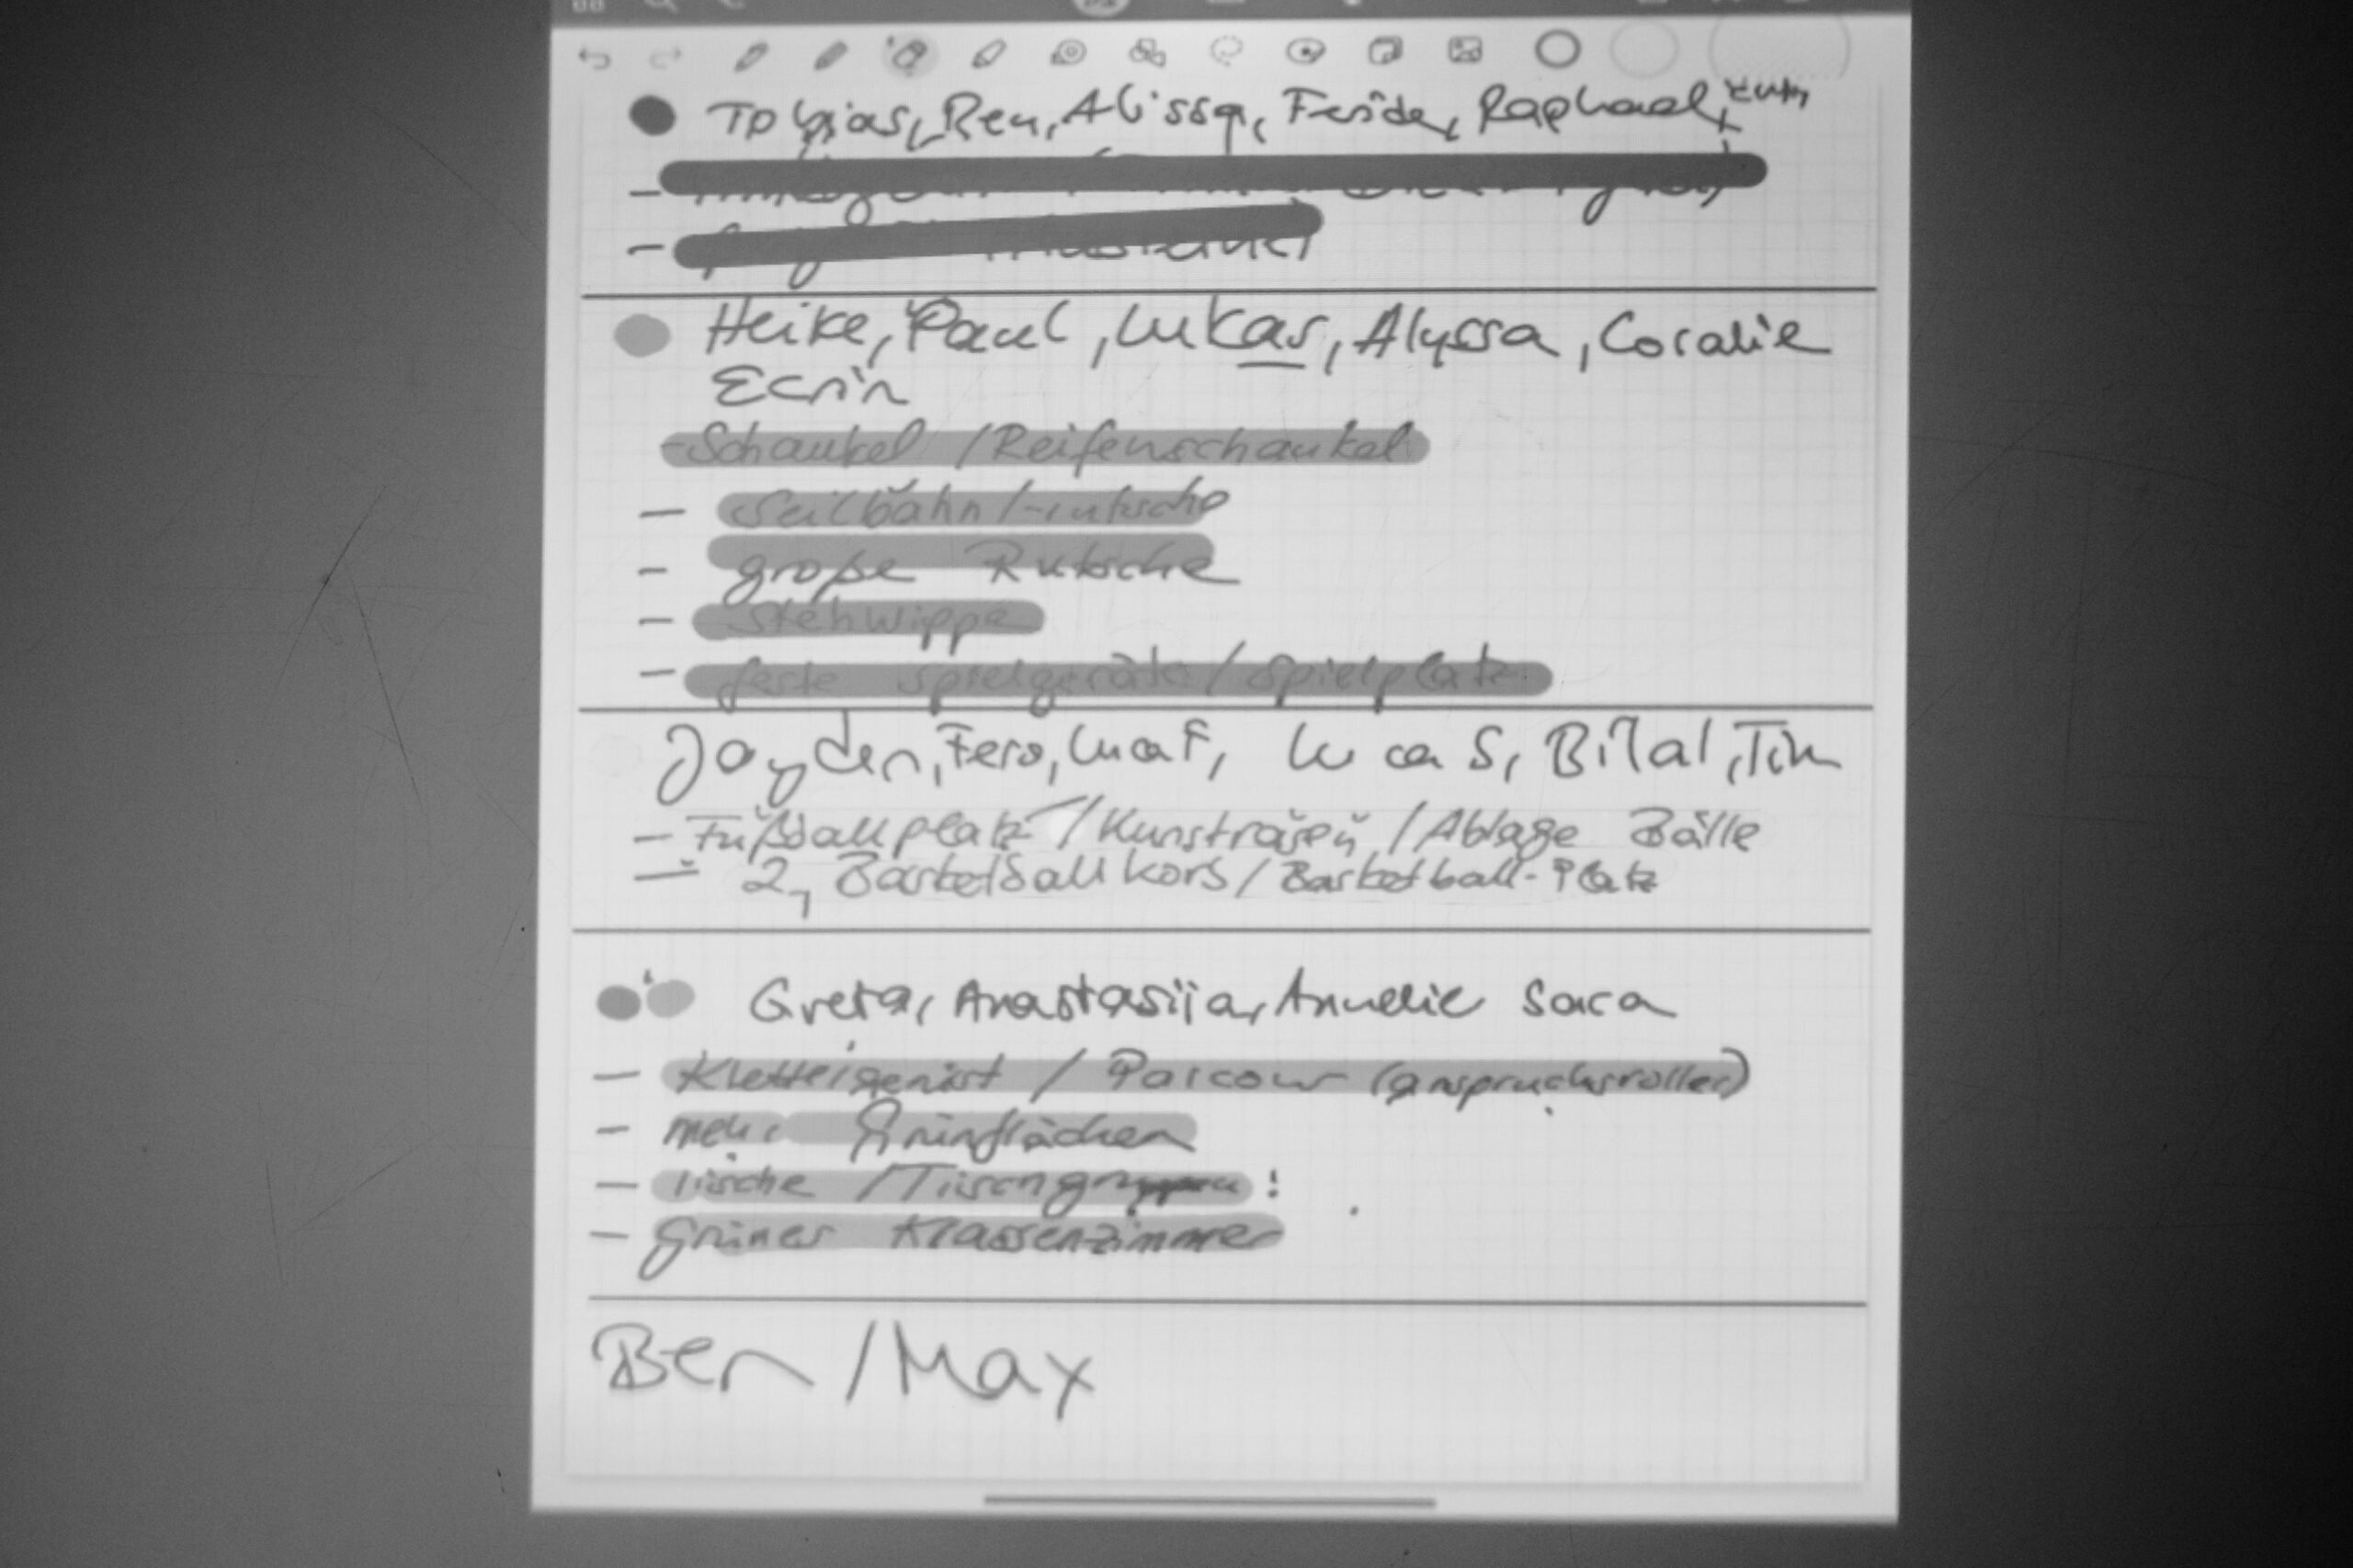 Tobias, Ben, Alissa, Feride, Raphael,
Heike, Paul, Lukas, Alyssa, Coralie
Ecrin
- Schaukel / Reifenschaukel
- Seilbahn / -rutsche
- große Rutsche
- Stehwippe
- feste Spielgeräte / Spielplatz
Jayden, Fero, Luca F, Luca S, Bilal, Tim
- Fußballplatz / Kunstrasen / Ablage Bälle
- 2, Basketballkorb / Basketball-Platz
Greta, Anastasiia, Annelie Sara
- Klettergerüst / Parcour (anspruchsvoller)
- mehr Grünflächen
- Tische / Tischgruppen :
- Grünes Klassenzimmer
Ben / Max